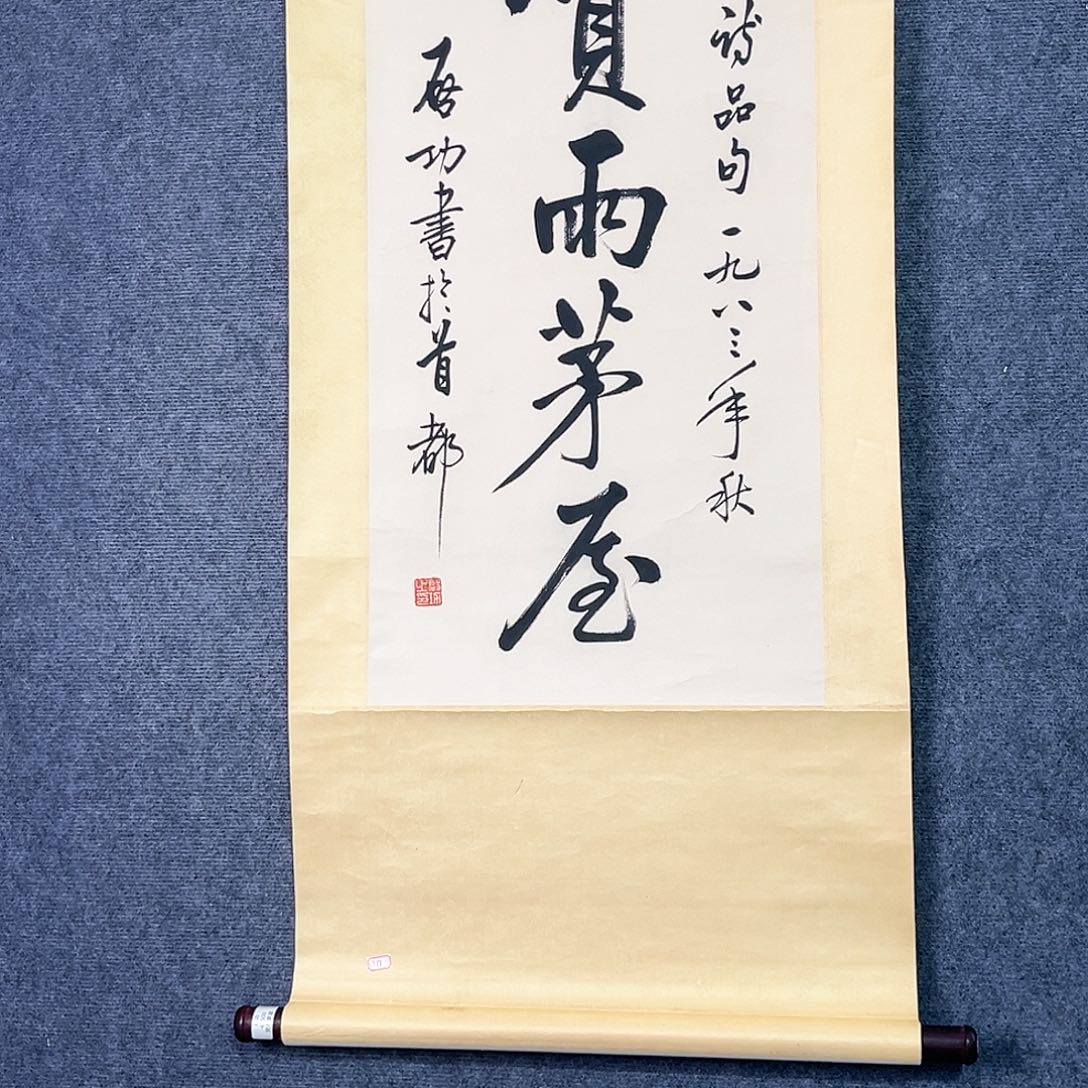 詩品句一九八三年秋
賞雨茅屋
启功書於首都